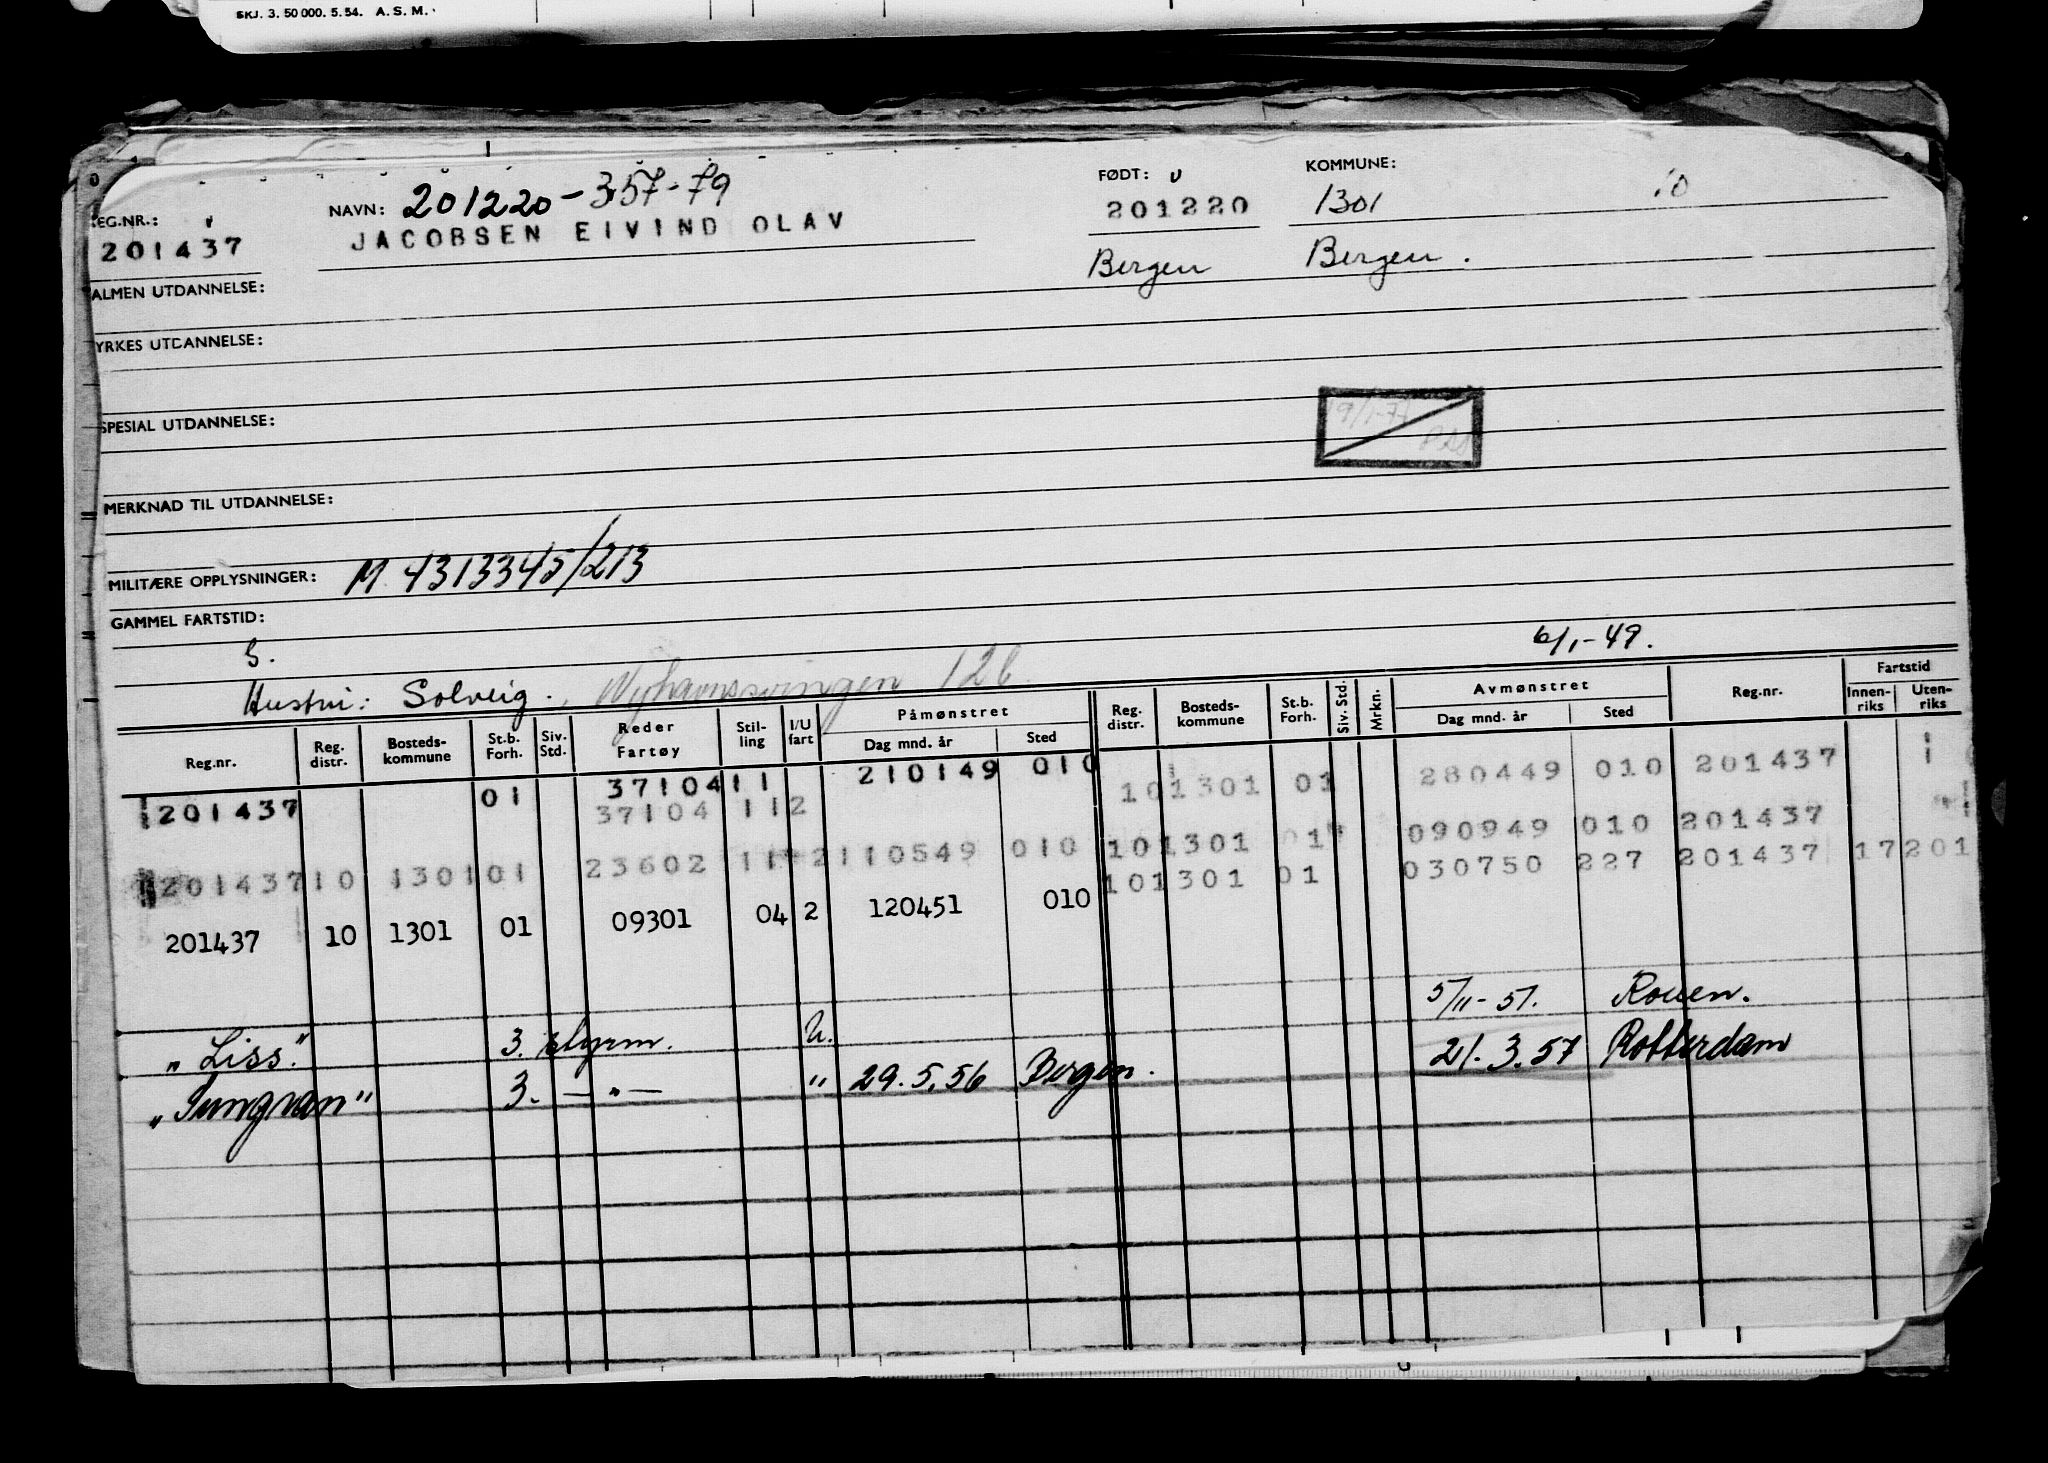 SKJ. 3. 50 000. 5. 54. A. S. M.
EG.NR.:
201437
NAVN: 201220-357-79
JACOBSEN EIVIND OLAV
FØDT:
201220
Bergen
KOMMUNE:
1301
10
Bergen.
ALMEN UTDANNELSE:
YRKES UTDANNELSE:
SPESIAL UTDANNELSE:
MERKNAD TIL UTDANNELSE:
MILITÆRE OPPLYSNINGER: M 4313345/213
GAMMEL FARTSTID:
G.
6/1-49.
Hustru: Solveig. 12b
Reg.nr. Reg. distr. Bosteds-kommune St.b. Forh. Siv. Std. Reder Fartøy Stil-ling I/U fart Påmønstret Dag mnd. år Sted Reg. distr. Bosteds-kommune St.b. Forh. Siv. Std. Mrkn. Avmønstret Dag mnd. år Sted Reg.nr. Fartstid Innen-riks Uten-riks
201437 01 37104 11 210149 010 101301 01 280449 010 201437
37104 112
101301 01 090949 010 201437
201437 10 1301 01 23602 11 2 110549 010 101301 01 030750 227 201437 17 201
201437 10 1301 01 09301 04 2 120451 010
5/11-51. Rouen.
"Liss." 3. styrm. U. 21.3.57 Rotterdam
"Sungvan" 3. —"— " 29.5.56 Bergen.